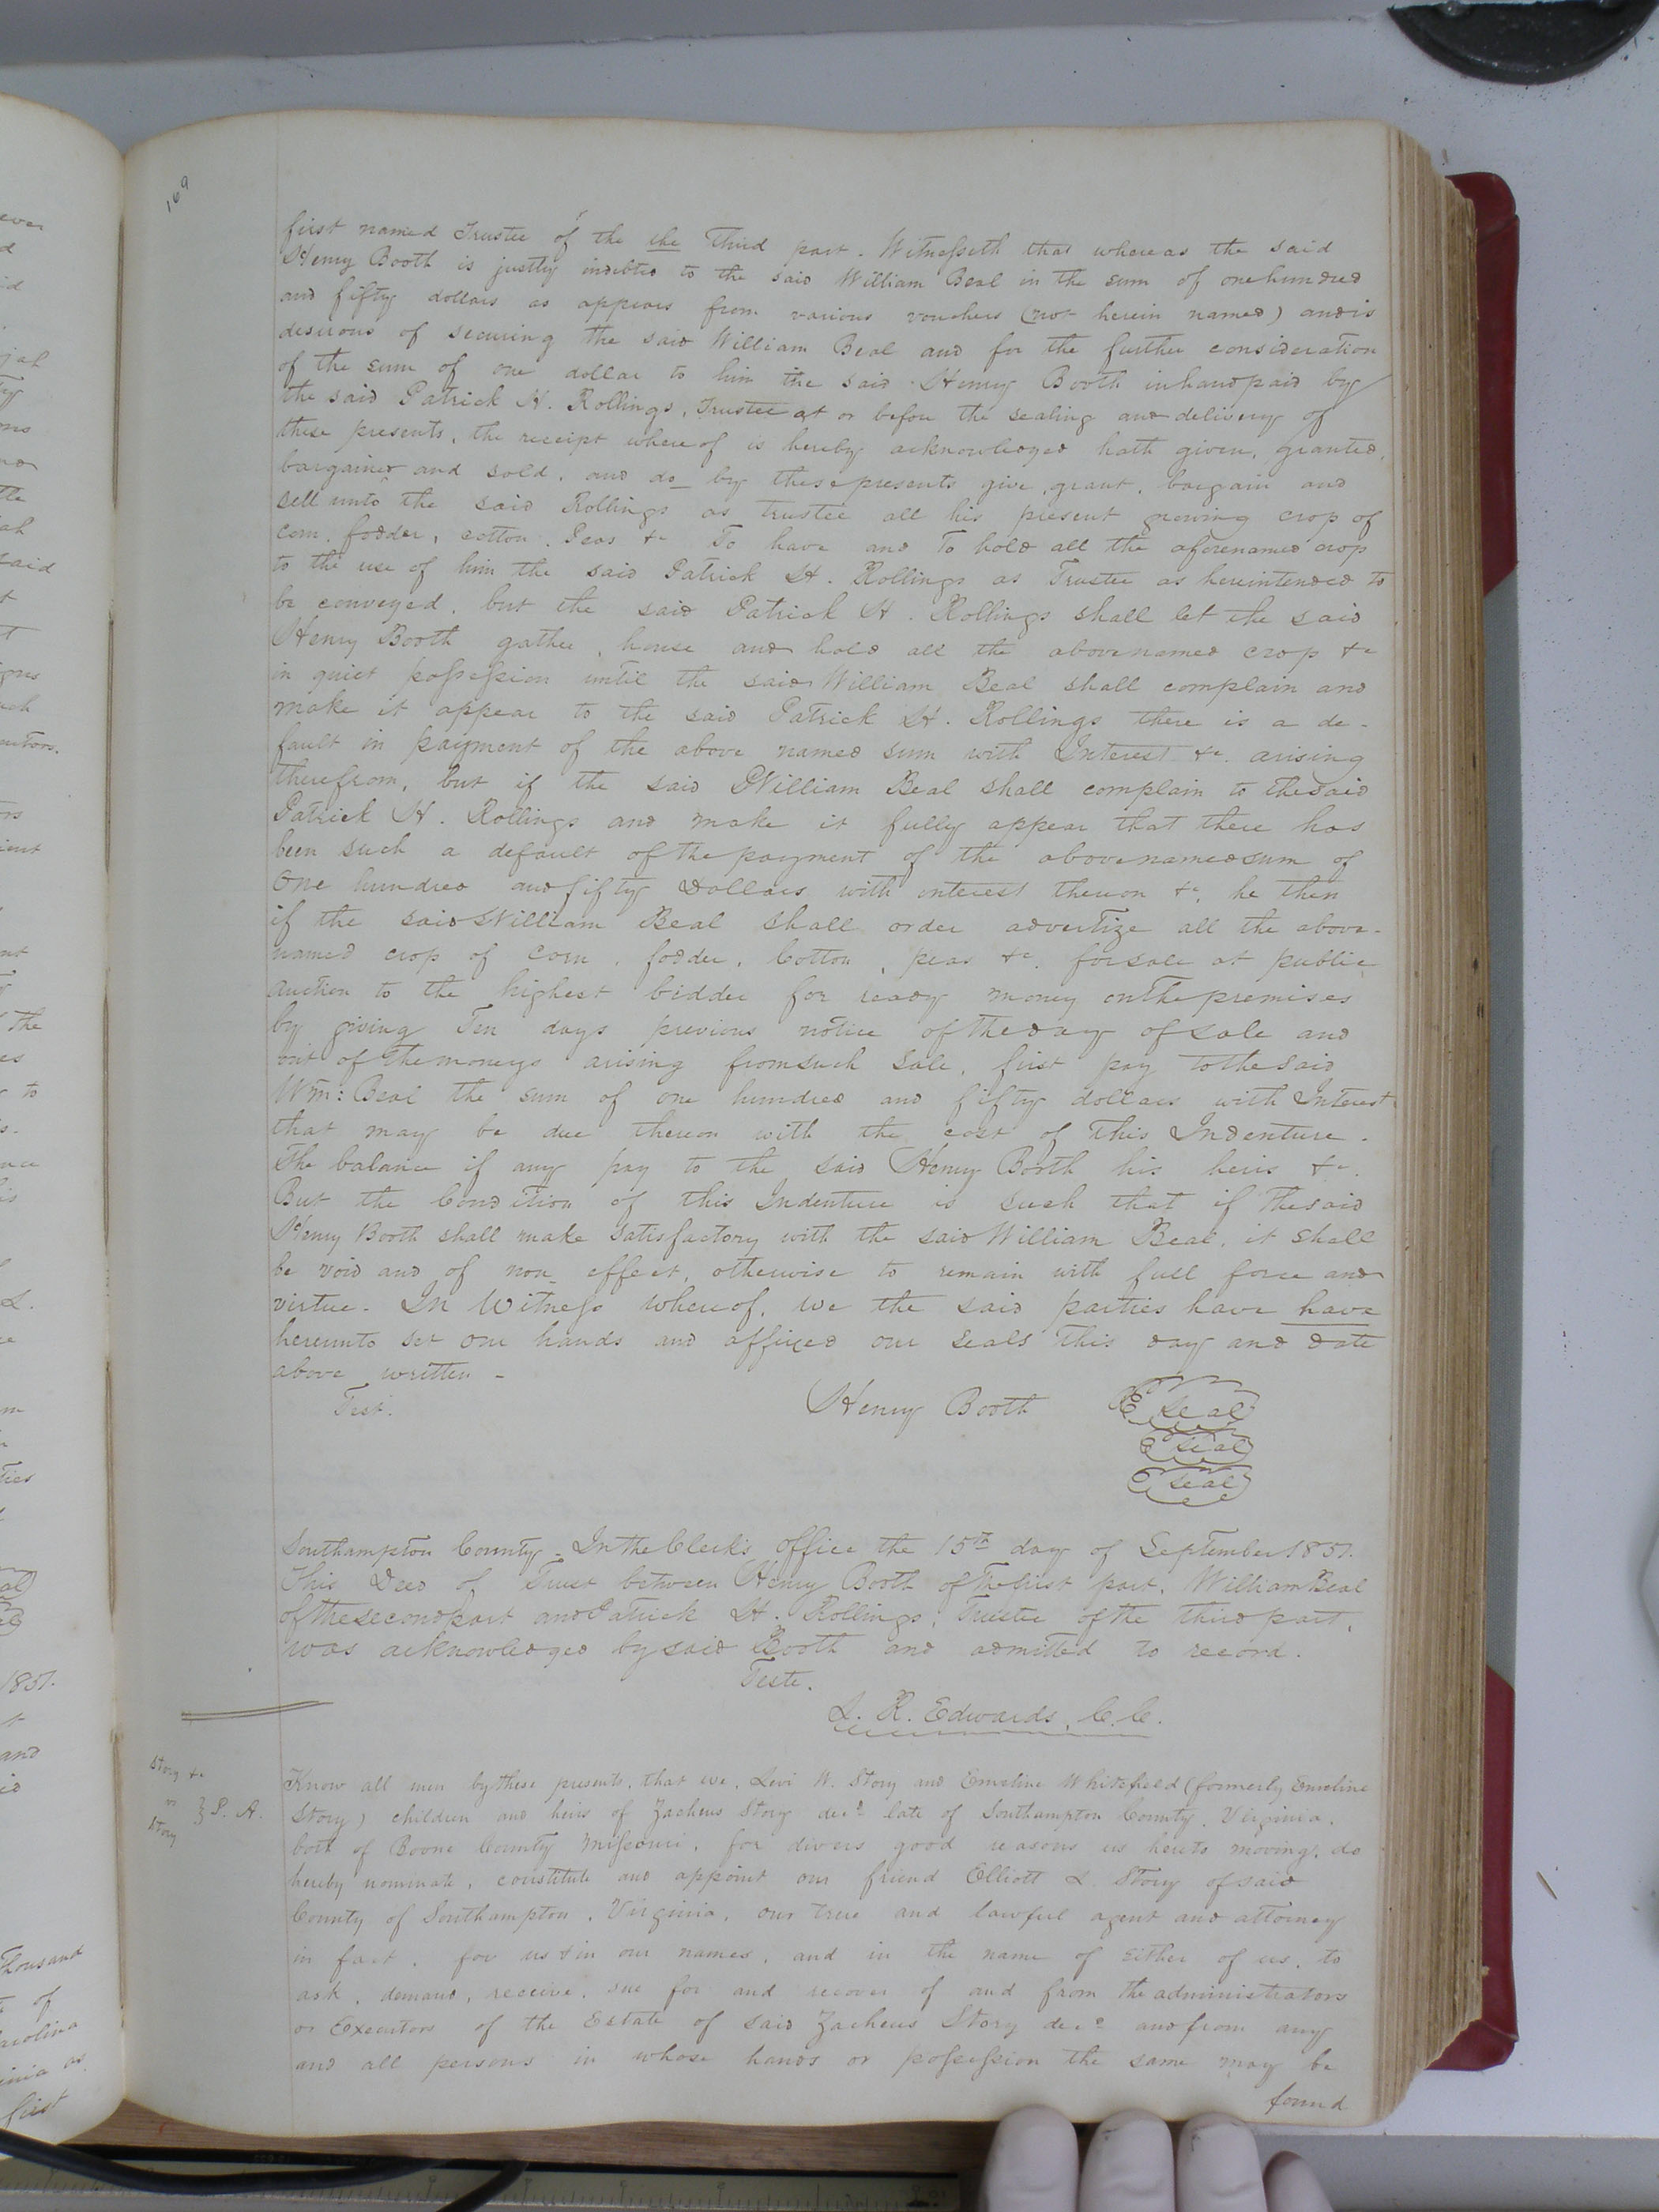 169
first named Trustee of the the Third part. Witnesseth that whereas the said
Henry Booth is justly indebted to the said William Beal in the sum of one hundred
and fifty dollars as appears from various vouchers (not herein named) and is
desirous of securing the said William Beal and for the further consideration
of the sum of one dollar to him the said Henry Booth in hand paid by
the said Patrick H. Rollings, Trustee at or before the sealing and delivery of
these presents, the receipt whereof is hereby acknowledged hath given, granted,
bargained and sold, and do by these presents give, grant, bargain and
sell unto the said Rollings as trustee all his present growing crop of
corn, fodder, cotton, Peas &c To have and To hold all the aforenamed crop
to the use of him the said Patrick H. Rollings as Trustee as hereintended to
be conveyed, but the said Patrick H. Rollings shall let the said
Henry Booth gather, house and hold all the above named crop &c
in quiet possession until the said William Beal shall complain and
make it appear to the said Patrick H. Rollings there is a de-
fault in payment of the above named sum with Interest &c. arising
therefrom, but if the said William Beal shall complain to the said
Patrick H. Rollings and make it fully appear that there has
been such a default of the payment of the above named sum of
One hundred and fifty Dollars with interest thereon &c, he then
if the said William Beal shall order advertize all the above-
named crop of Corn, fodder, Cotton, peas &c. for sale at public
auction to the highest bidder for ready money on the premises
by giving Ten days previous notice of the day of sale and
out of the moneys arising from such sale, first pay to the said
Wm: Beal the sum of one hundred and fifty dollars with Interest
that may be due thereon with the cost of this Indenture.
The balance if any pay to the said Henry Booth his heirs &c.
But the Condition of this Indenture is such that if the said
Henry Booth shall make satisfactory with the said William Beal, it shall
be void and of non effect, otherwise to remain with full force and
virtue. In Witness whereof, we the said parties have have
hereunto set our hands and affixed our seals this day and date
above written -
Test.
Henry Booth
Seal
Seal
Seal
Southampton County - In the Clerk's Office the 15th day of September 1851.
This Deed of Trust between Henry Booth of the first part, William Beal
of the second part and Patrick H. Rollings, Trustee of the third part,
was acknowledged by said Booth and admitted to record.
Teste.
L. R. Edwards, C. C.
Story &c
vs } P. A.
Story
Know all men by these presents, that we, Levi W. Story and Emeline Whitefield (formerly Emeline
Story) children and heirs of Zacheus Story decd late of Southampton County, Virginia,
both of Boone County Missouri, for divers good reasons us hereto moving, do
hereby nominate, constitute and appoint our friend Elliott L. Story of said
County of Southampton, Virginia, our true and lawful agent and attorney
in fact, for us & in our names, and in the name of either of us, to
ask, demand, receive, sue for and recover of and from the administrators
or Executors of the Estate of said Zacheus Story decd and from any
and all persons in whose hands or possession the same may be
found